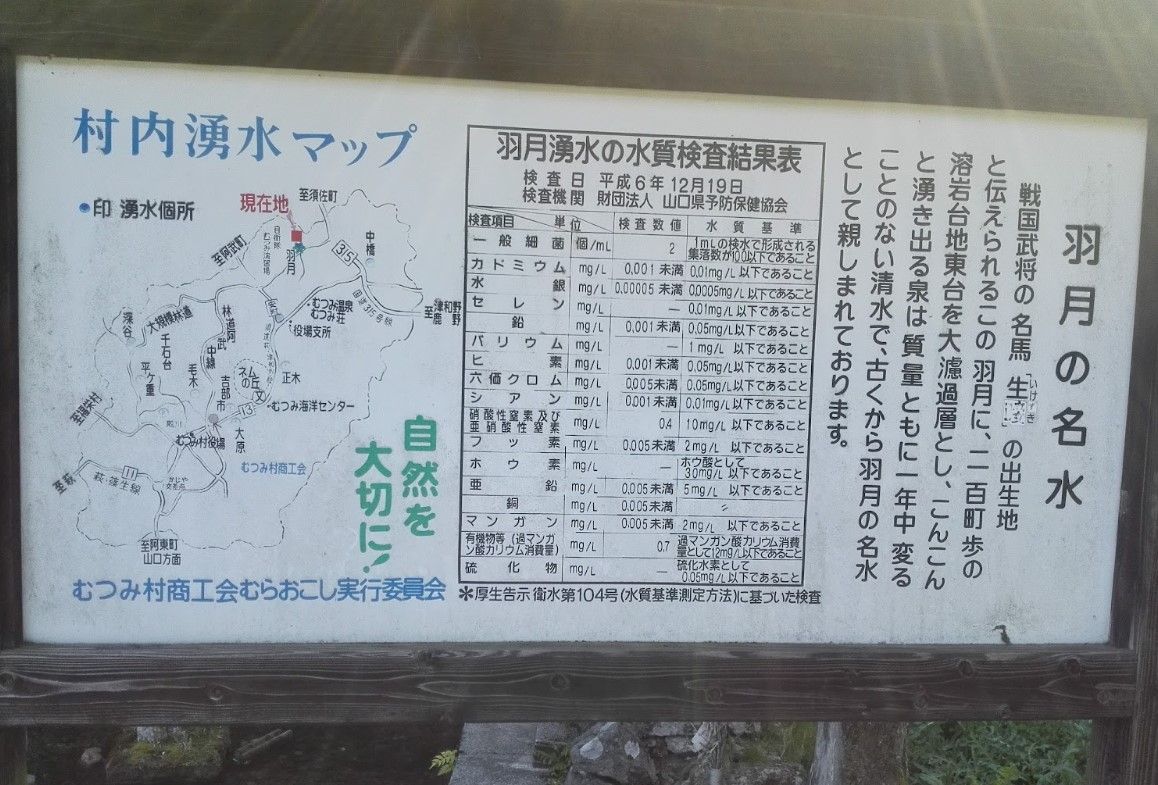 村内湧水マップ
●印 湧水個所
現在地
至須佐町
至阿武町
羽月
315
中橋
国道315号線
至津和野
至鹿野
むつみ温泉
むつみ荘
役場支所
深谷
大規模林道
千石台
平ケ重
林道阿武中線
毛木
吉部市
伏ネムの丘
正木
13
むつみ海洋センター
大原
むつみ村役場
むつみ村商工会
至萩
11
萩・篠生線
至阿東町
山口方面
自然を
大切に!
むつみ村商工会むらおこし実行委員会
羽月湧水の水質検査結果表
検査日 平成6年12月19日
検査機関 財団法人 山口県予防保健協会
検査項目 単位 検査数値 水質基準
一般細菌 個/mL 2 1mLの検水で形成される集落数が100以下であること
カドミウム mg/L 0.001未満 0.01mg/L以下であること
水銀 mg/L 0.00005未満 0.0005mg/L以下であること
セレン mg/L — 0.01mg/L以下であること
鉛 mg/L 0.001未満 0.05mg/L以下であること
バリウム mg/L — 1mg/L以下であること
ヒ素 mg/L 0.001未満 0.05mg/L以下であること
六価クロム mg/L 0.005未満 0.05mg/L以下であること
シアン mg/L 0.001未満 0.01mg/L以下であること
硝酸性窒素及び亜硝酸性窒素 mg/L 0.4 10mg/L以下であること
フッ素 mg/L 0.005未満 2mg/L以下であること
ホウ素 mg/L — ホウ酸として30mg/L以下であること
亜鉛 mg/L 0.005未満 5mg/L以下であること
銅 mg/L 0.005未満 〃
マンガン mg/L 0.005未満 2mg/L 以下であること
有機物等(過マンガン酸カリウム消費量) mg/L 0.7 過マンガン酸カリウム消費量として12mg/L以下であること
硫化物 mg/L — 硫化水素として0.05mg/L以下であること
＊厚生告示 衛水第104号(水質基準測定方法)に基づいた検査
羽月の名水
戦国武将の名馬「生」いけずきの出生地
と伝えられるこの羽月に、二百町歩の
溶岩台地東台を大濾過層とし、こんこん
と湧き出る泉は質量ともに一年中変る
ことのない清水で、古くから羽月の名水
として親しまれております。